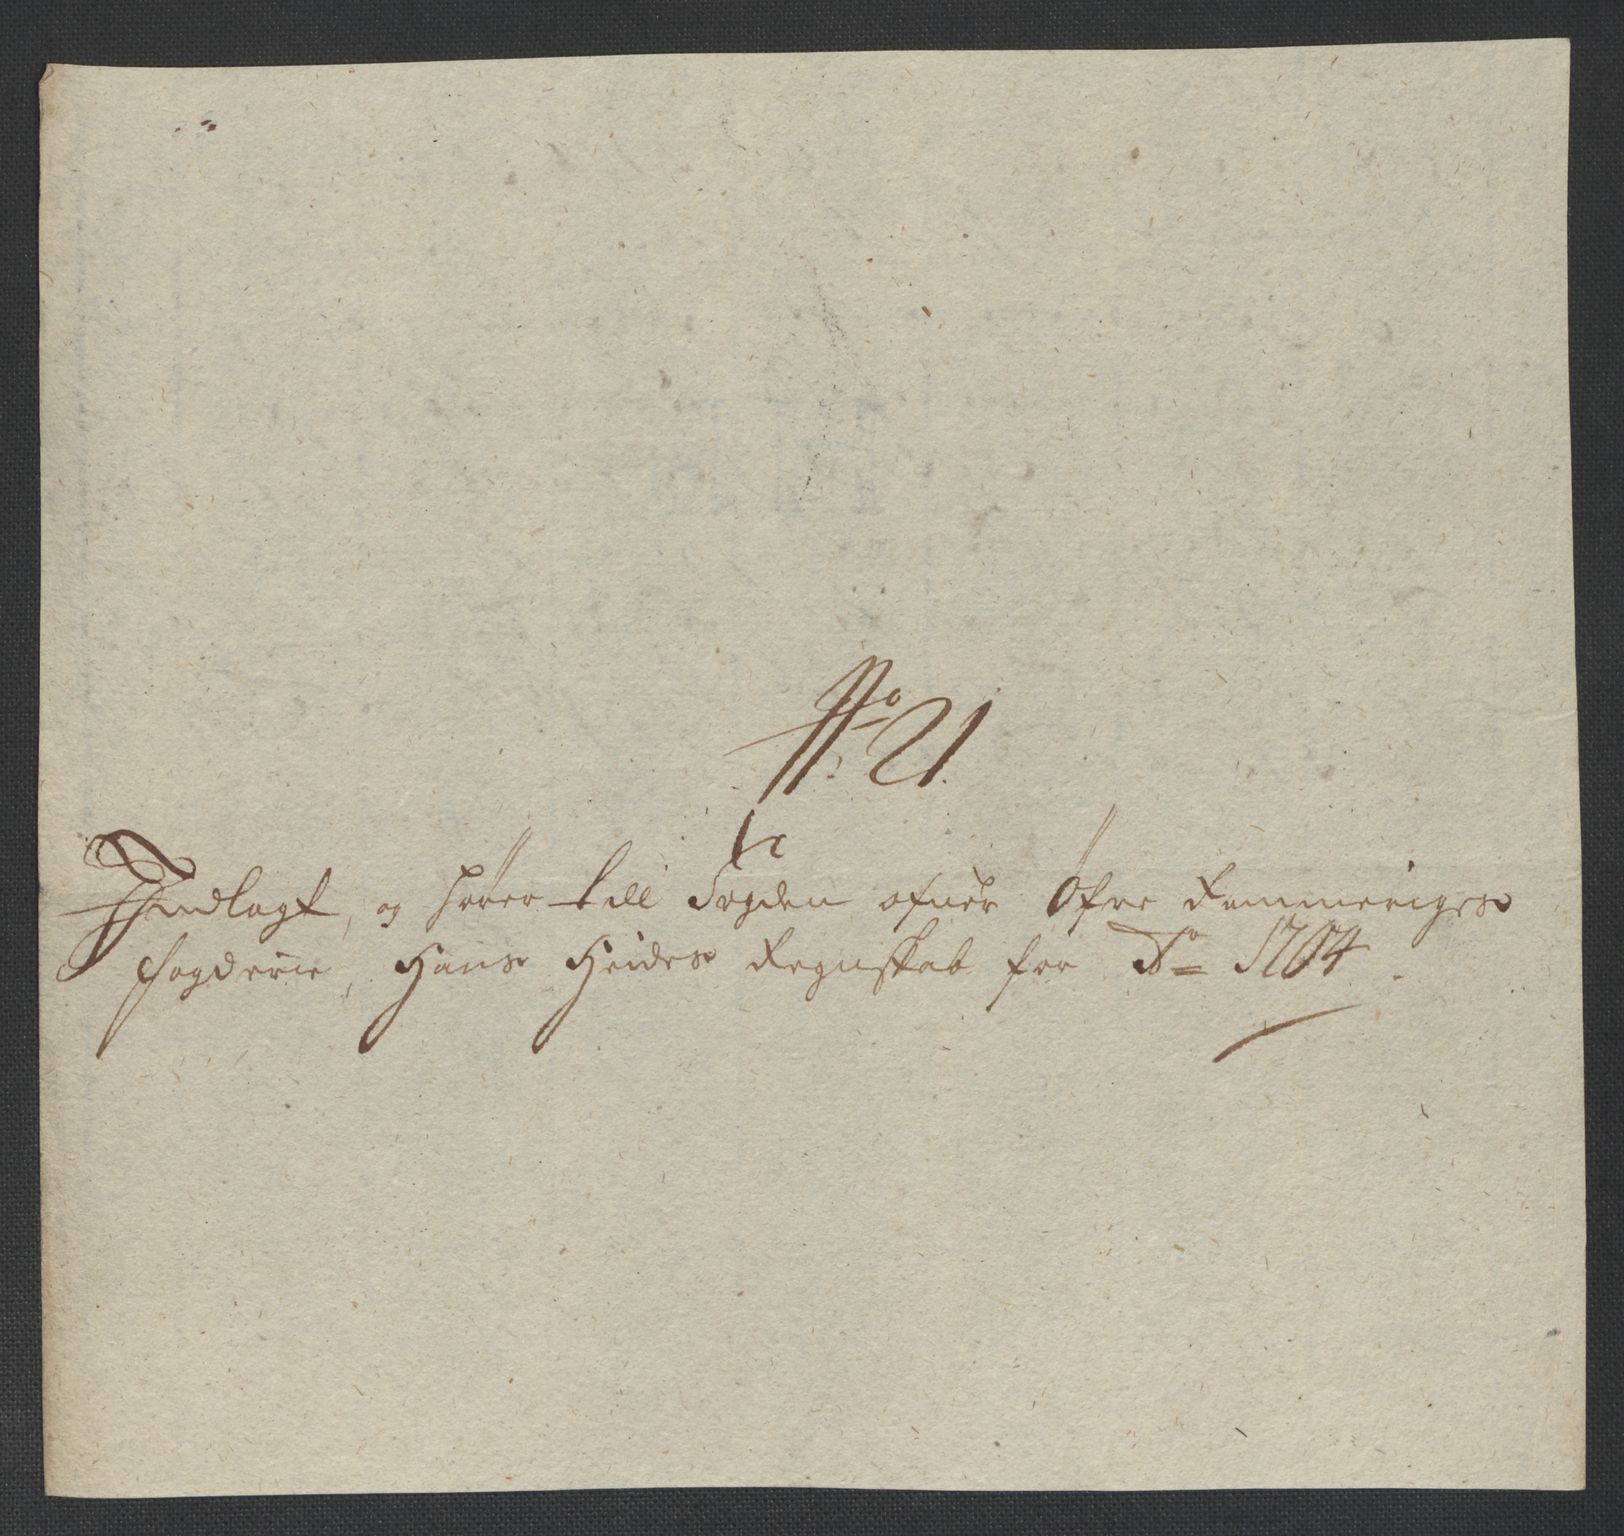 No 21
Indlagt, og hører till Fogden ofuer Øfre Rommeriges
fogderie, Hans Heides Regnskab for Ao 1704.